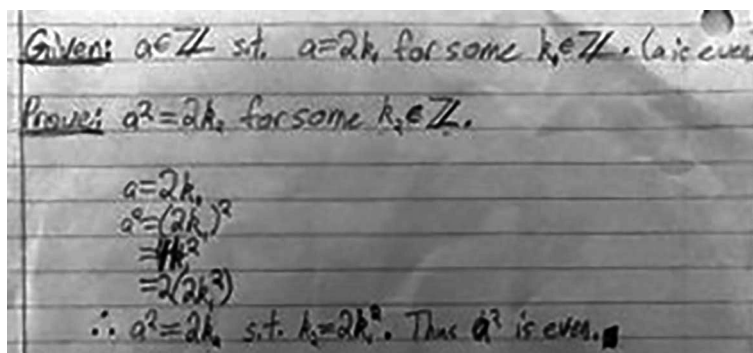 Given: a∈ℤ s.t. a=2k₁ for some k₁∈ℤ. (a is even
Prove: a²=2k₂ for some k₂∈ℤ.
a=2k₁
a²=(2k₁)²
=4k₁²
=2(2k₁²)
∴ a²=2k₂ s.t. k₂=2k₁². Thus a² is even.